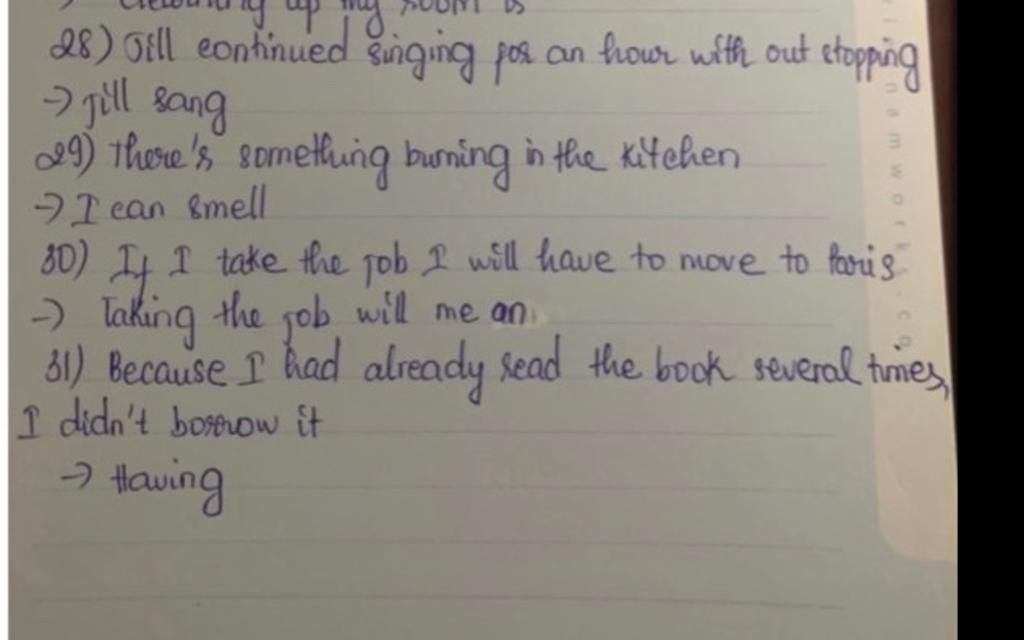 up my room is
28) Jill continued singing for an hour with out stopping
→ Jill sang
29) There's something burning in the kitchen
→ I can smell
30) If I take the job I will have to move to Paris
→ Taking the job will me an
31) Because I had already read the book several times,
I didn't borrow it
→ Having